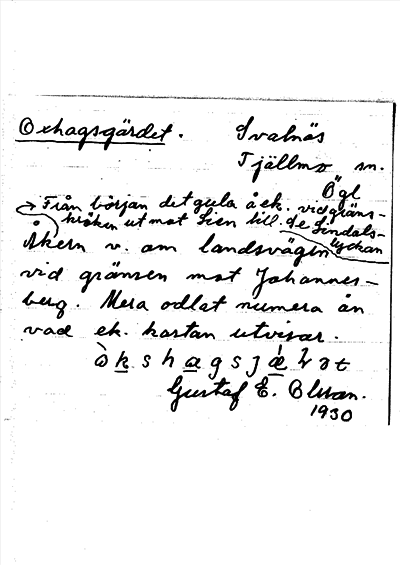 Oxhagsgärdet. Svalnäs
Tjällmo sn.
Ögl
→ Från början det gula å ek. vid gräns-
kröken ut mot Sien till. de Lindals-
lyckan
Åkern v. om landsvägen
vid gränsen mot Johannes-
berg. Mera odlat numera än
vad ek. kartan utvisar.
Gustaf E. Olsson.
1930